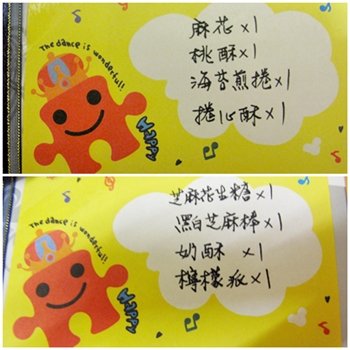 The dance is wonderful!
麻花×1
桃酥×1
海苔煎捲×1
捲心酥×1
Happy
The dance is wonderful!
芝麻花生糖×1
黑白芝麻棒×1
奶酥 ×1
檸檬派×1
Happy